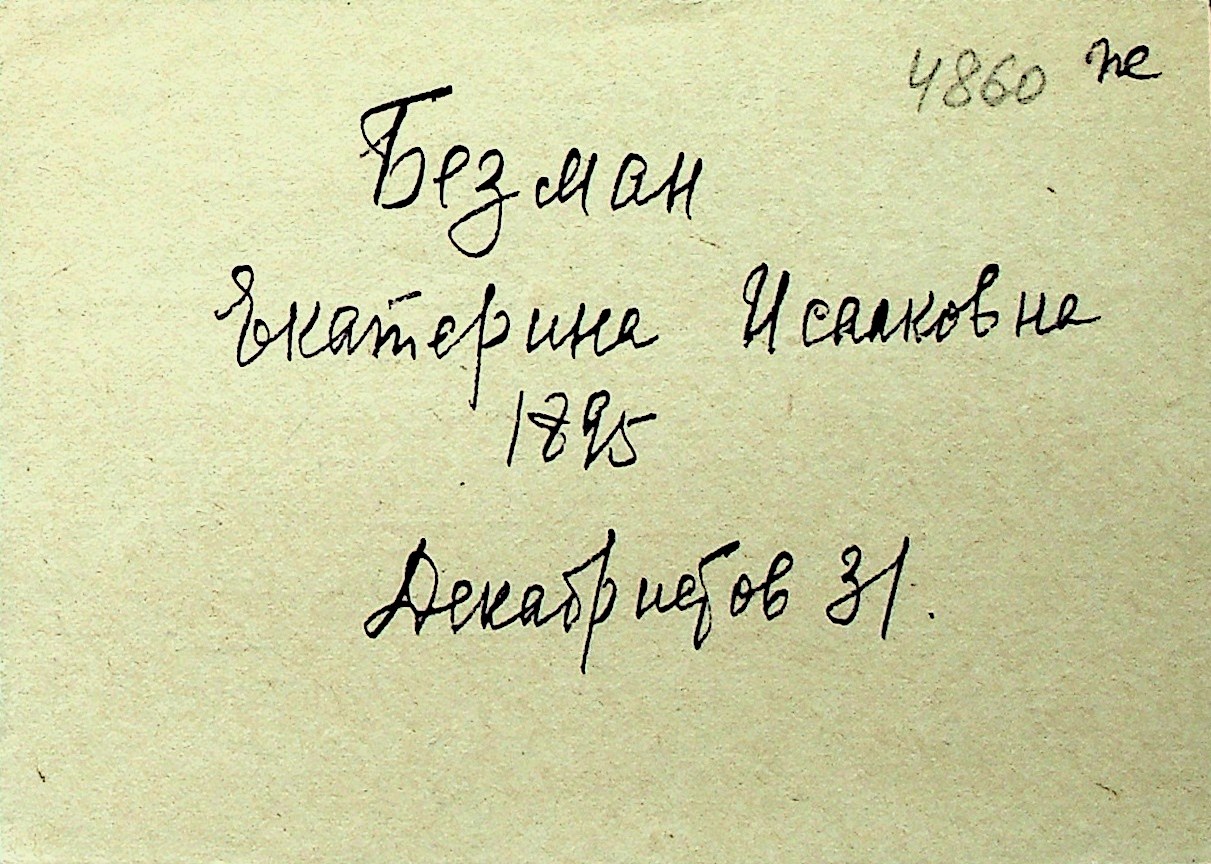 4860 пе
Безман
Екатерина Исааковна
1895
Декабристов 31.